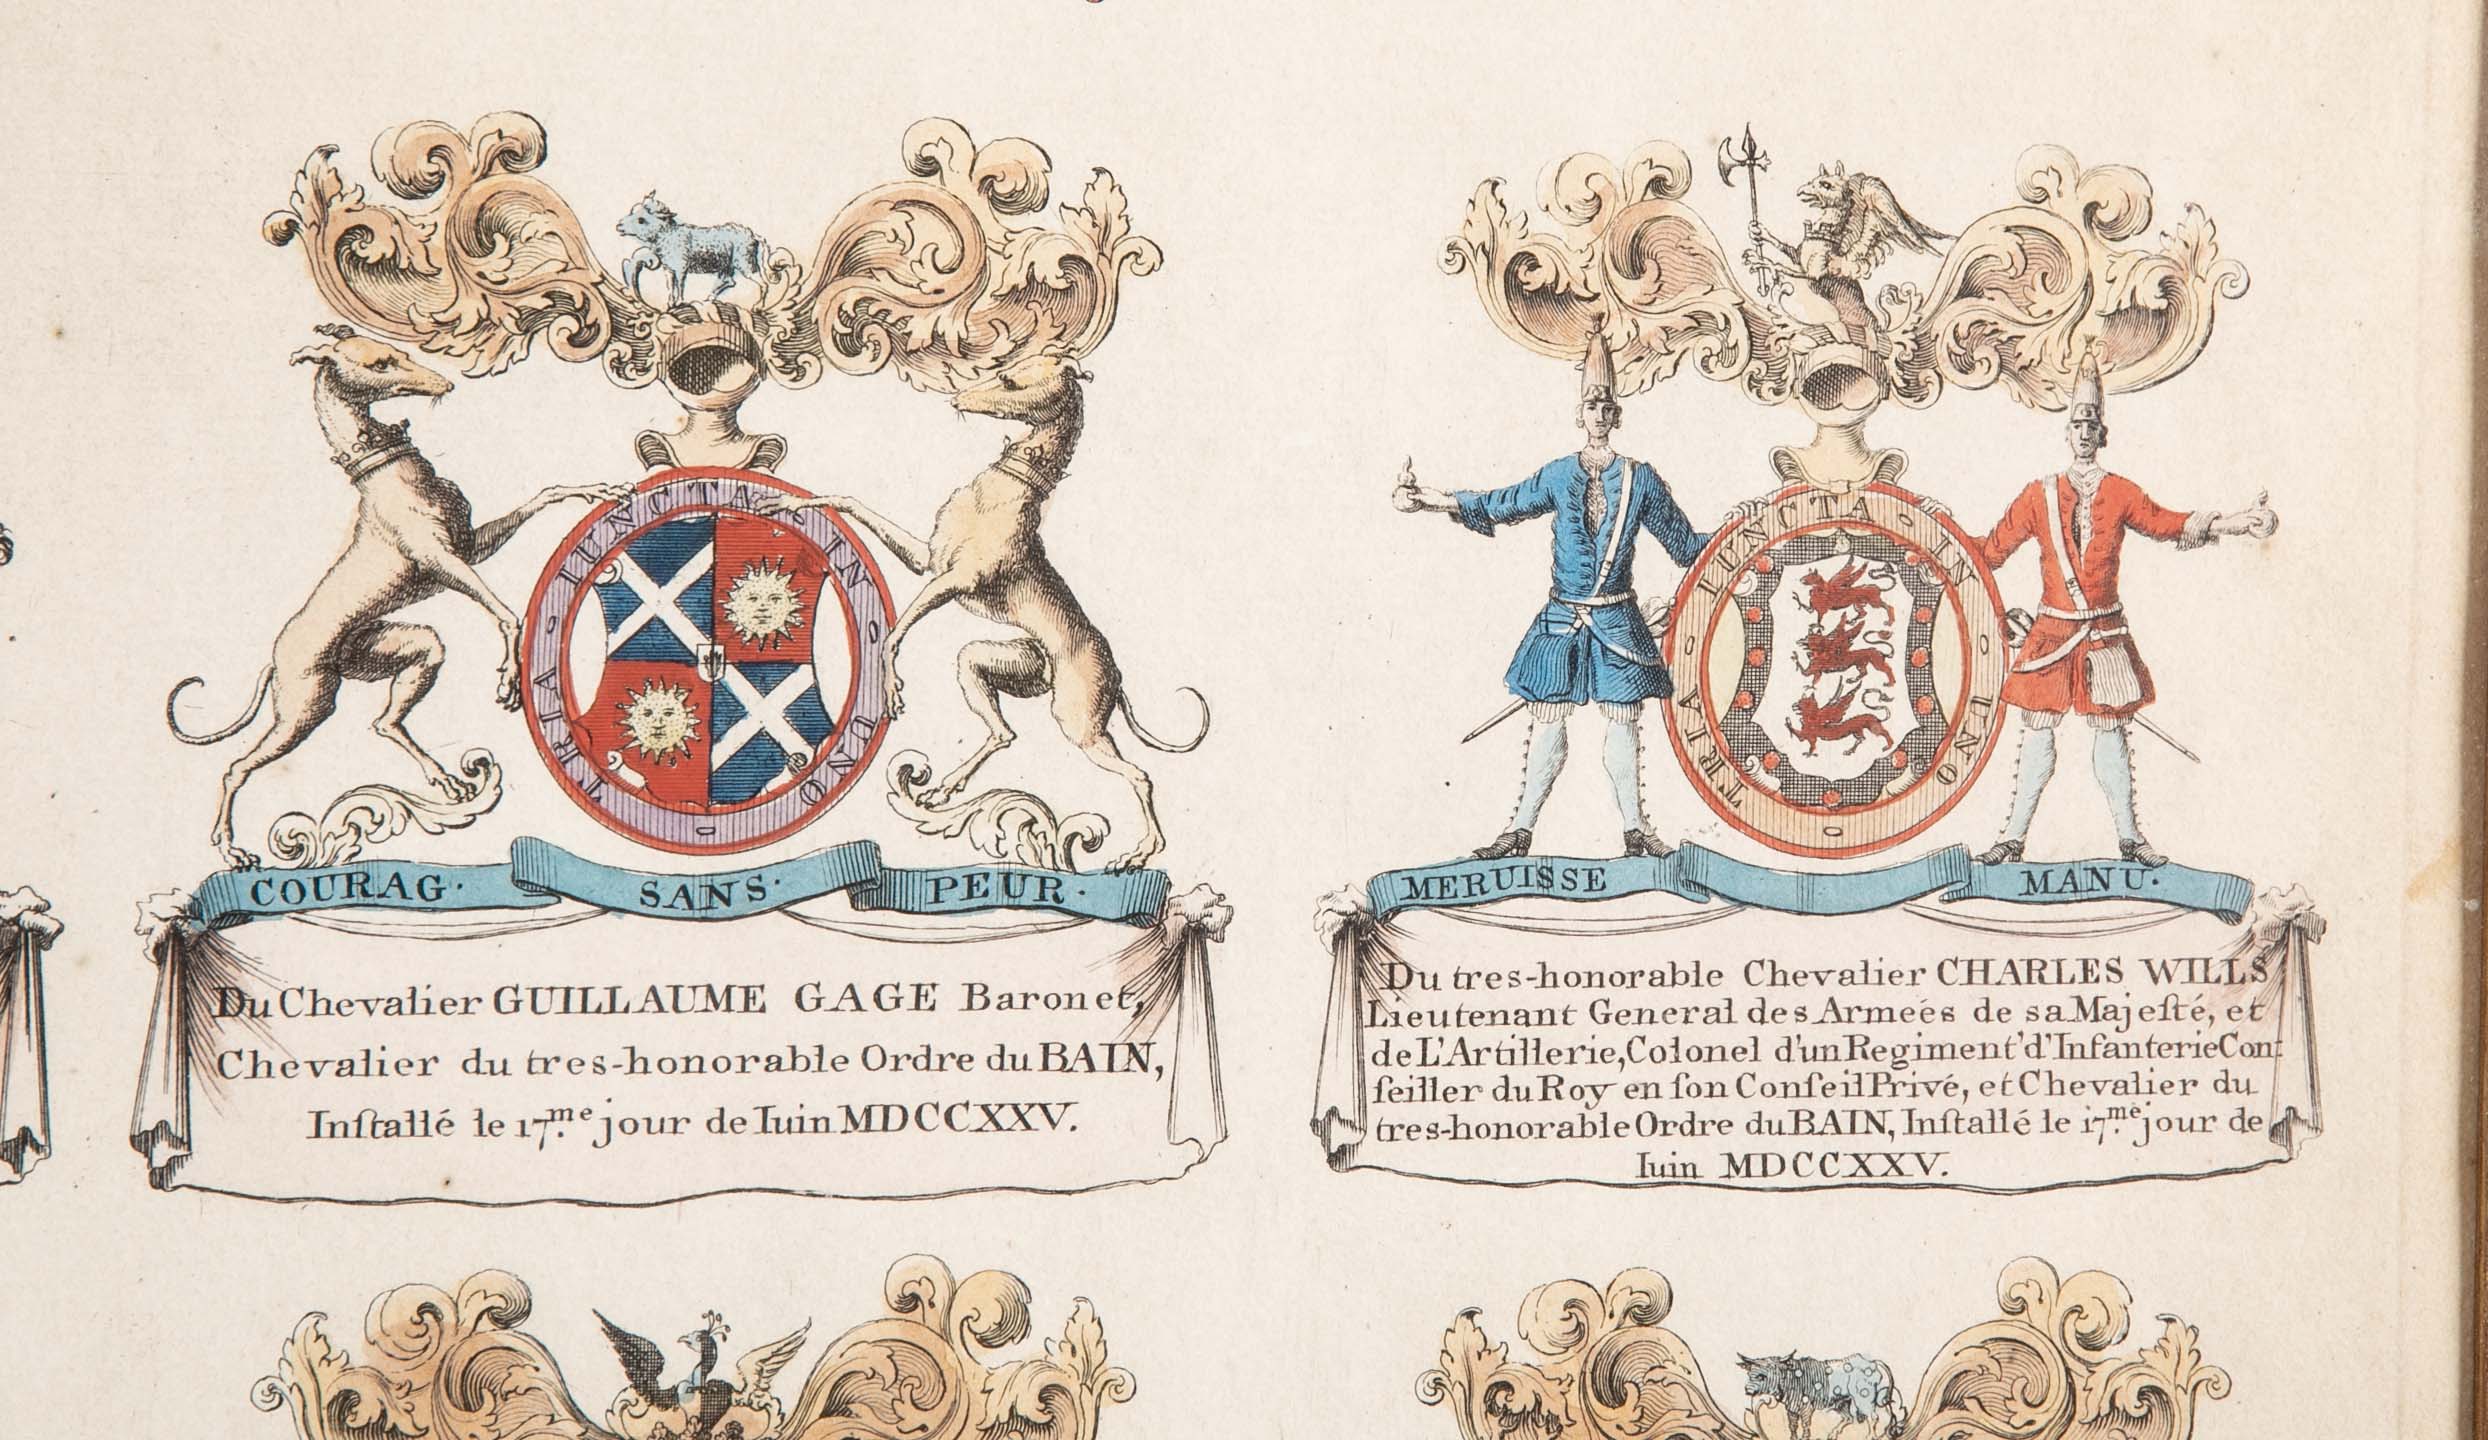 TRIA · IUNCTA · IN UNO
COURAG · SANS · PEUR ·
Du Chevalier GUILLAUME GAGE Baronet,
Chevalier du tres-honorable Ordre du BAIN,
Inſtallé le 17.me jour de Iuin MDCCXXV.
TRIA IUNCTA IN UNO
MERUISSE MANU.
Du tres-honorable Chevalier CHARLES WILLS
Lieutenant General des Armeés de sa Majeſté, et
de L'Artillerie, Colonel d'un Regiment d'Infanterie Con:
ſeiller du Roy en ſon Conſeil Privé, et Chevalier du
tres-honorable Ordre du BAIN, Inſtallé le 17.me jour de
Iuin MDCCXXV.